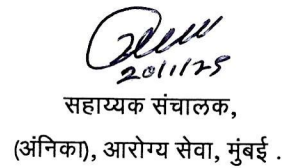 20/11/25
सहाय्यक संचालक,
(अंनिका), आरोग्य सेवा, मुंबई .